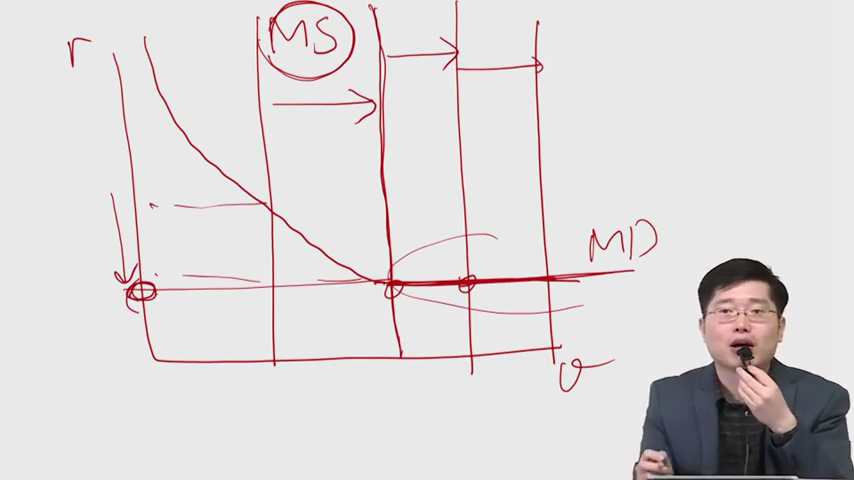 r
MS
MD